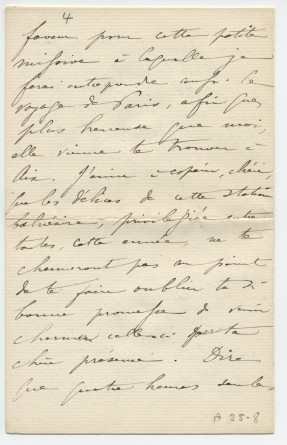 4
faveur pour cette petite
missive à laquelle je
ferai entreprendre aussi le
voyage de Paris, afin que,
plus heureuse que moi,
elle vienne te trouver à
Aix. J'aime à espérer, chéri,
que les délices de cette station
balnéaire, privilégiée entre
toutes, cette année, ne te
charmeront pas au point
de te faire oublier ta si
bonne promesse de venir
charmer celle-ci par ta
chère présence. Dire
que quatre heures seules
A 25-8